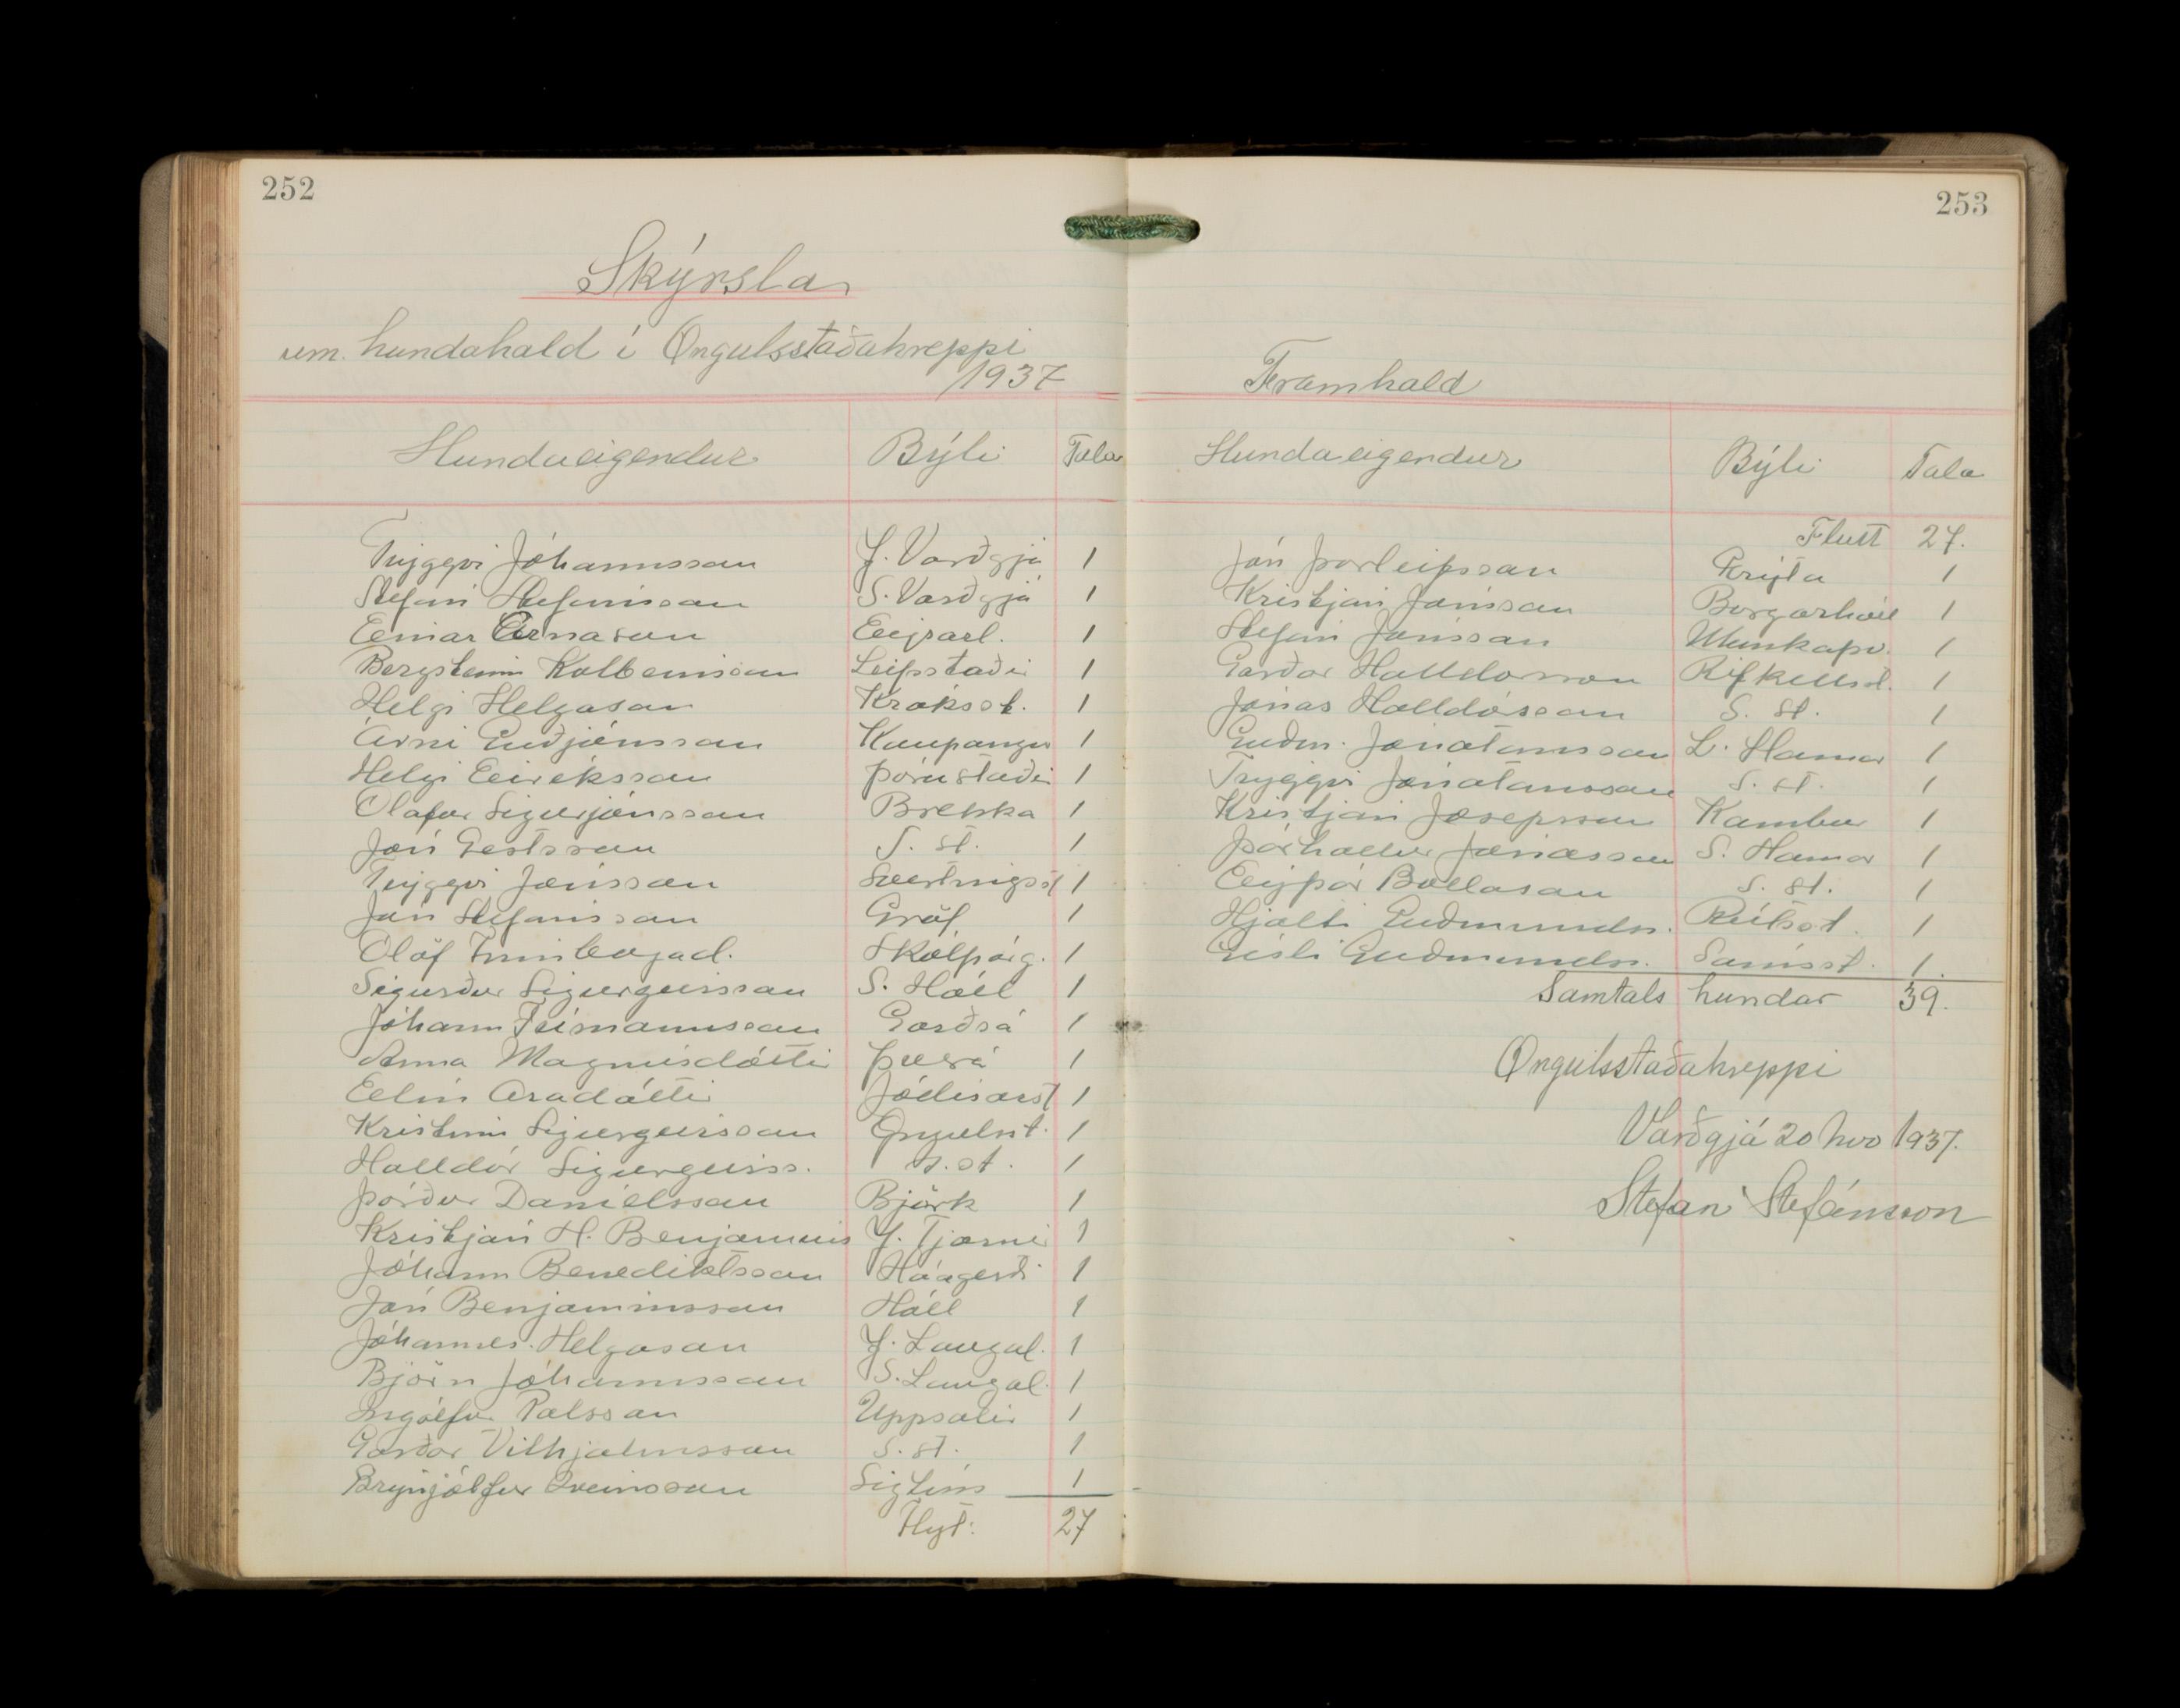 252
Skýrsla
um hundahald í Öngulsstaðahreppi
1937
Hundaeigendur Býli Tala
Tryggvi Jóhannsson Y. Varðgjá 1
Stefán Stefánsson S. Varðgjá 1
Einar Árnason Eyrarl. 1
Bergsteinn Kolbeinsson Leifsstaðir 1
Helgi Helgason Króksst. 1
Árni Guðjónsson Kaupangur 1
Helgi Eiríksson Þórustaðir 1
Ólafur Sigurjónsson Brekka 1
Jón Gestsson S. st. 1
Tryggvi Jónsson Svertingsst 1
Jón Stefánsson Gröf 1
Ólöf Finnbogad. Skálpag. 1
Sigurður Sigurgeirsson S. Hóll 1
Jóhann Frímannsson Garðsá 1
Anna Magnúsdóttir Þverá 1
Elín Aradóttir Jódísarst 1
Kristinn Sigurgeirsson Öngulst. 1
Halldór Sigurgeirss. s.st. 1
Þórður Daníelsson Björk 1
Kristján H. Benjamíns Y. Tjarnir 1
Jóhann Benediktsson Háagerði 1
Jón Benjamínsson Hóll 1
Jóhannes Helgason Y. Laugal. 1
Björn Jóhannsson S. Laugal. 1
Ingólfur Pálsson Uppsalir 1
Garðar Vilhjálmsson S. st. 1
Brynjólfur Sveinsson Sigtún 1
Flyt: 27
253
Framhald
Hundaeigendur Býli Tala
Flutt 27.
Jón Þorleifsson Grýta 1
Kristján Jónsson Borgarhóll 1
Stefán Jónsson Munkaþv. 1
Garðar Halldórsson Rifkelsst. 1
Jónas Halldórsson S. st. 1
Guðm. Jónatansson L. Hamar 1
Tryggvi Jónatansson S. st. 1
Kristján Jósepsson Kambur 1
Þórhallur Jónasson S. Hamar 1
Eyþór Bollason S. st. 1
Hjalti Guðmundss. Rútsst. 1
Gísli Guðmundss. Sámsst. 1.
Samtals hundar 39.
Öngulsstaðahreppi
Varðgjá 20 nov 1937.
Stefán Stefánsson